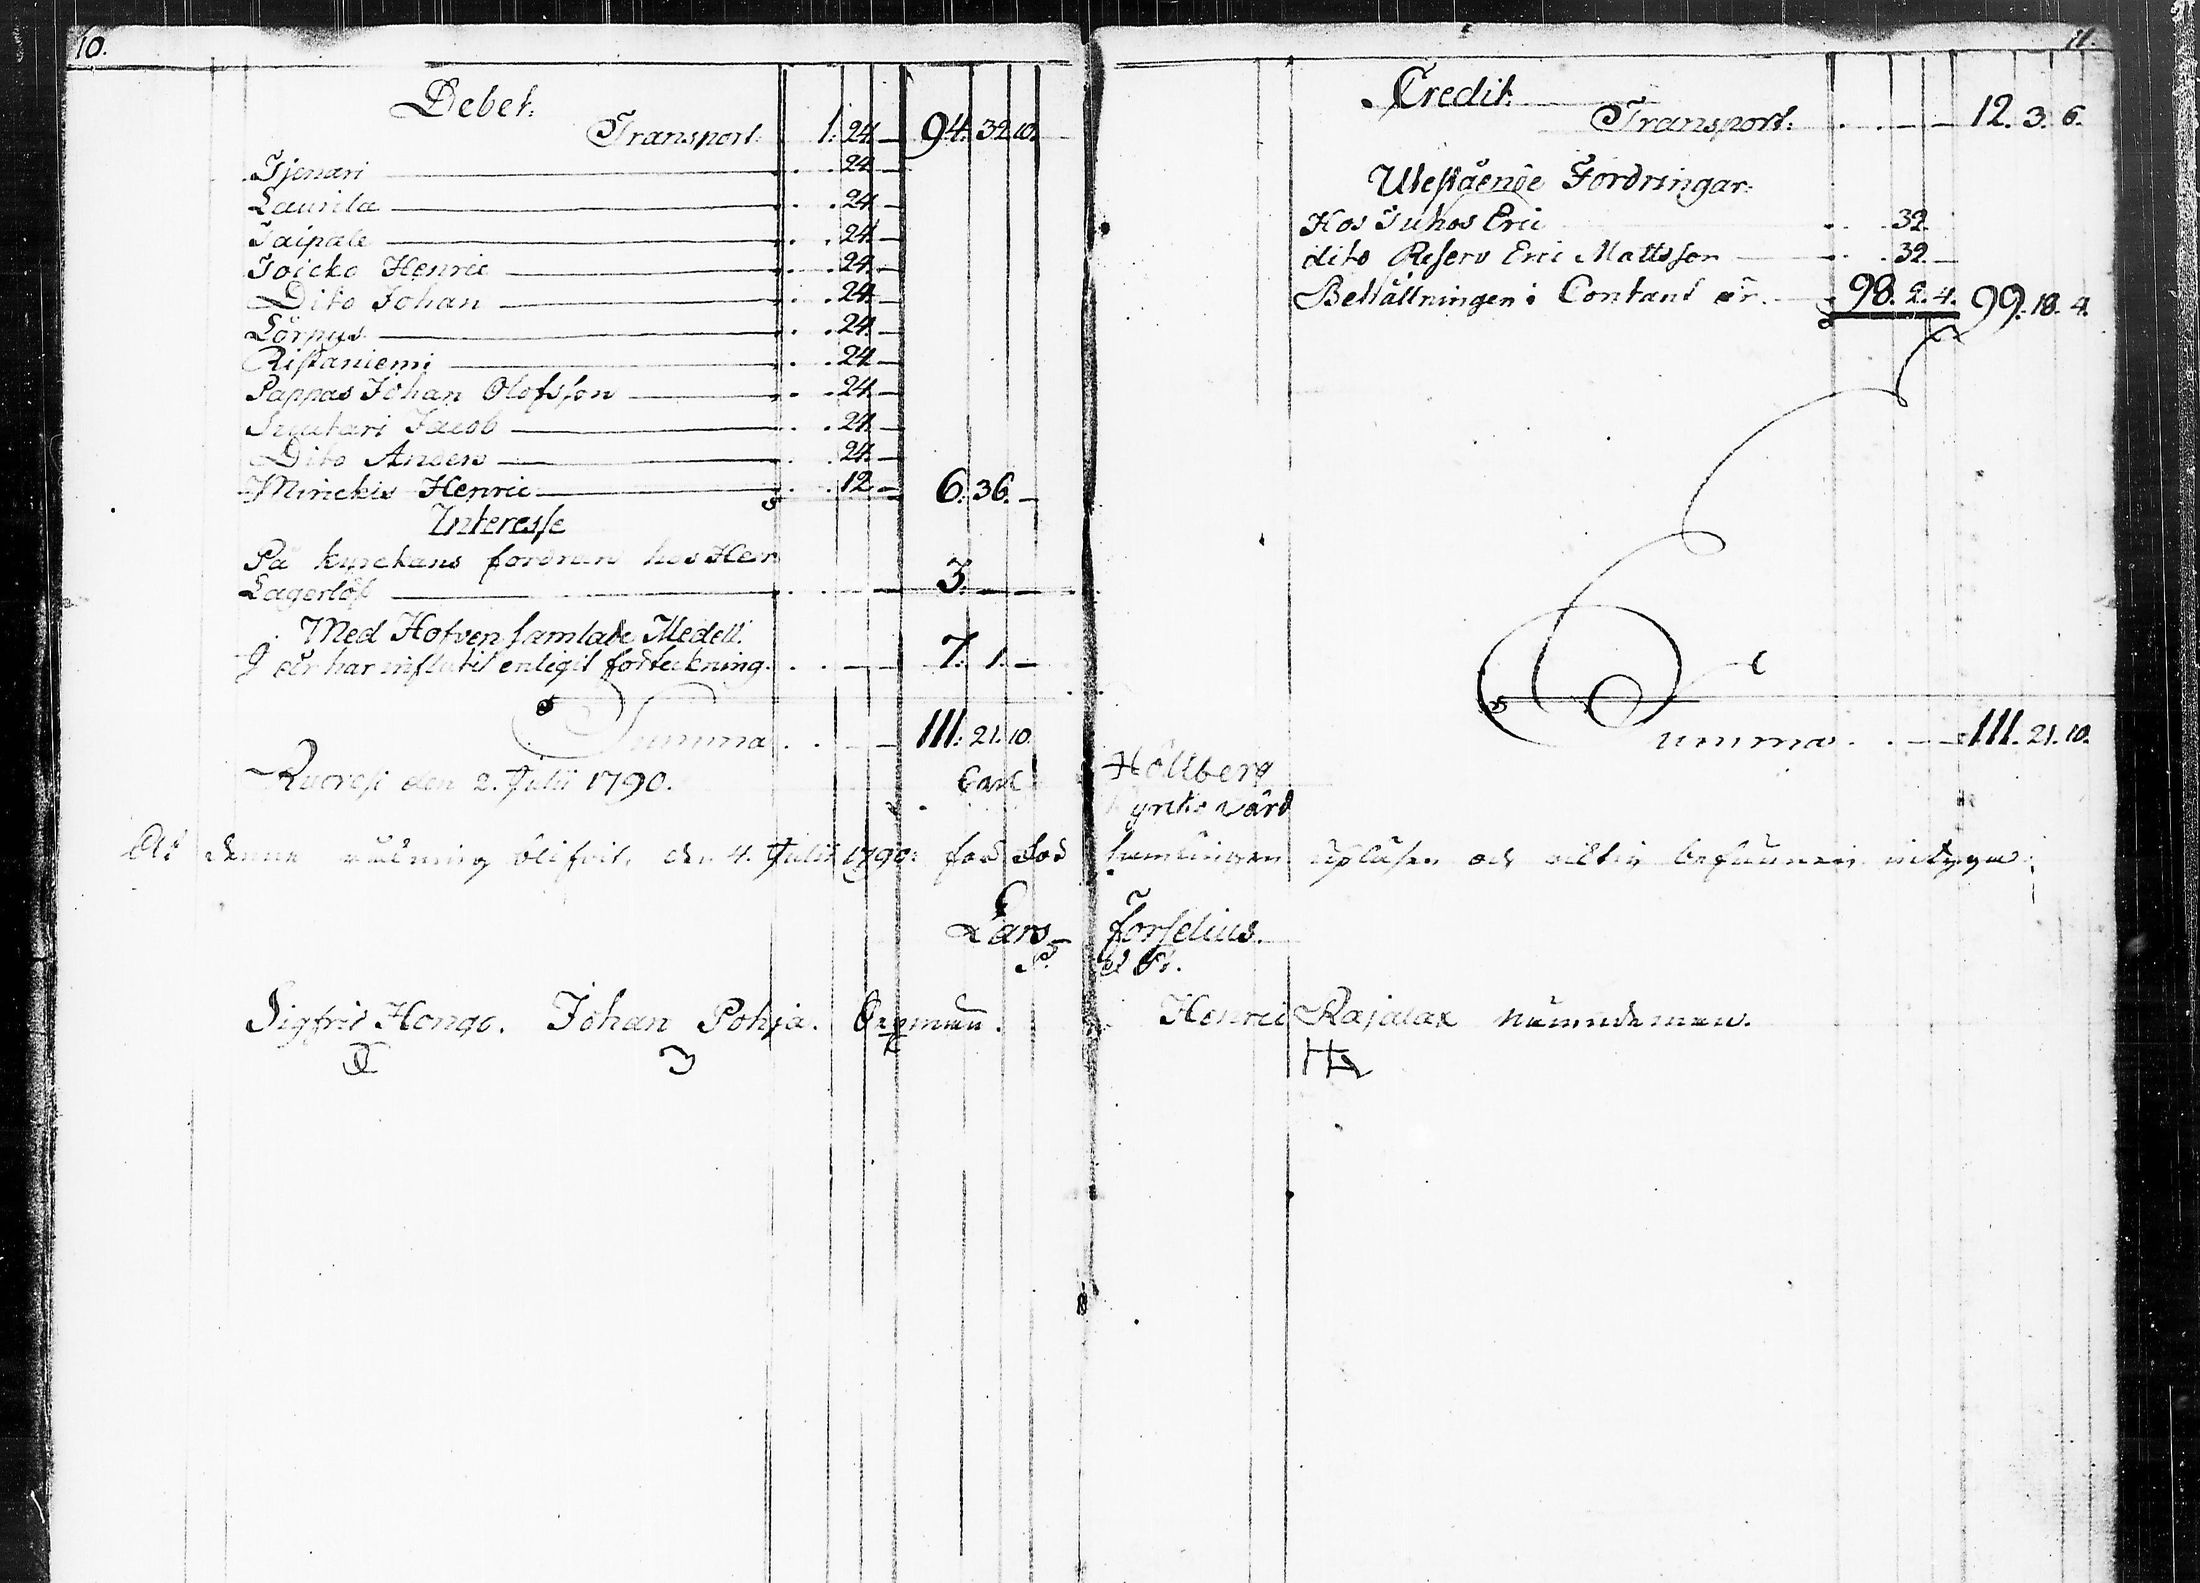 10.
Debet.
Transport. 1. 24. — 94. 32. 10.
Ijenari . . 24. —
Laurila . . 24. —
Taipale . . 24. —
Toicko Henric . . 24. —
Dito Johan . . 24. —
Sörpys . . 24. —
Ristaniemi . . 24. —
Pappas Johan Olofsson . . 24. —
Jacob . . 24. —
Dito Anders . . 24. —
Henric . . 12 — 6. 36. —
Interesse
På kyrckans fordran hos Herr
Lagerlöf . . — 3. — —
Med Hofven samlade Medell.
I år har influtit enligit förteckning. . . — 7. 1. —
Summa . . — 111. 21. 10.
Ruovesi den 2. Julii 1790.
Carl Hollberg
Kyrko värd
At denna räkning blifvit, den 4. Julii 1790. för Sockn
hemlingen upläsen och riktig befunnen intygar.
Lars Forselius.
Sigfrid Hongo. Johan Pohja. Henric Rajalax nämndeman.
11.
Credit.
Transport. . . — — 12. 3. 6.
Utestående Fordringar.
Hos Juhos Eric . . 32.
dito Reserv Eric Mattsson . . 32. —
Behållningen i Contant är. 98. 2. 4. 99. 18. 4.
Summa . . — 111. 21. 10.